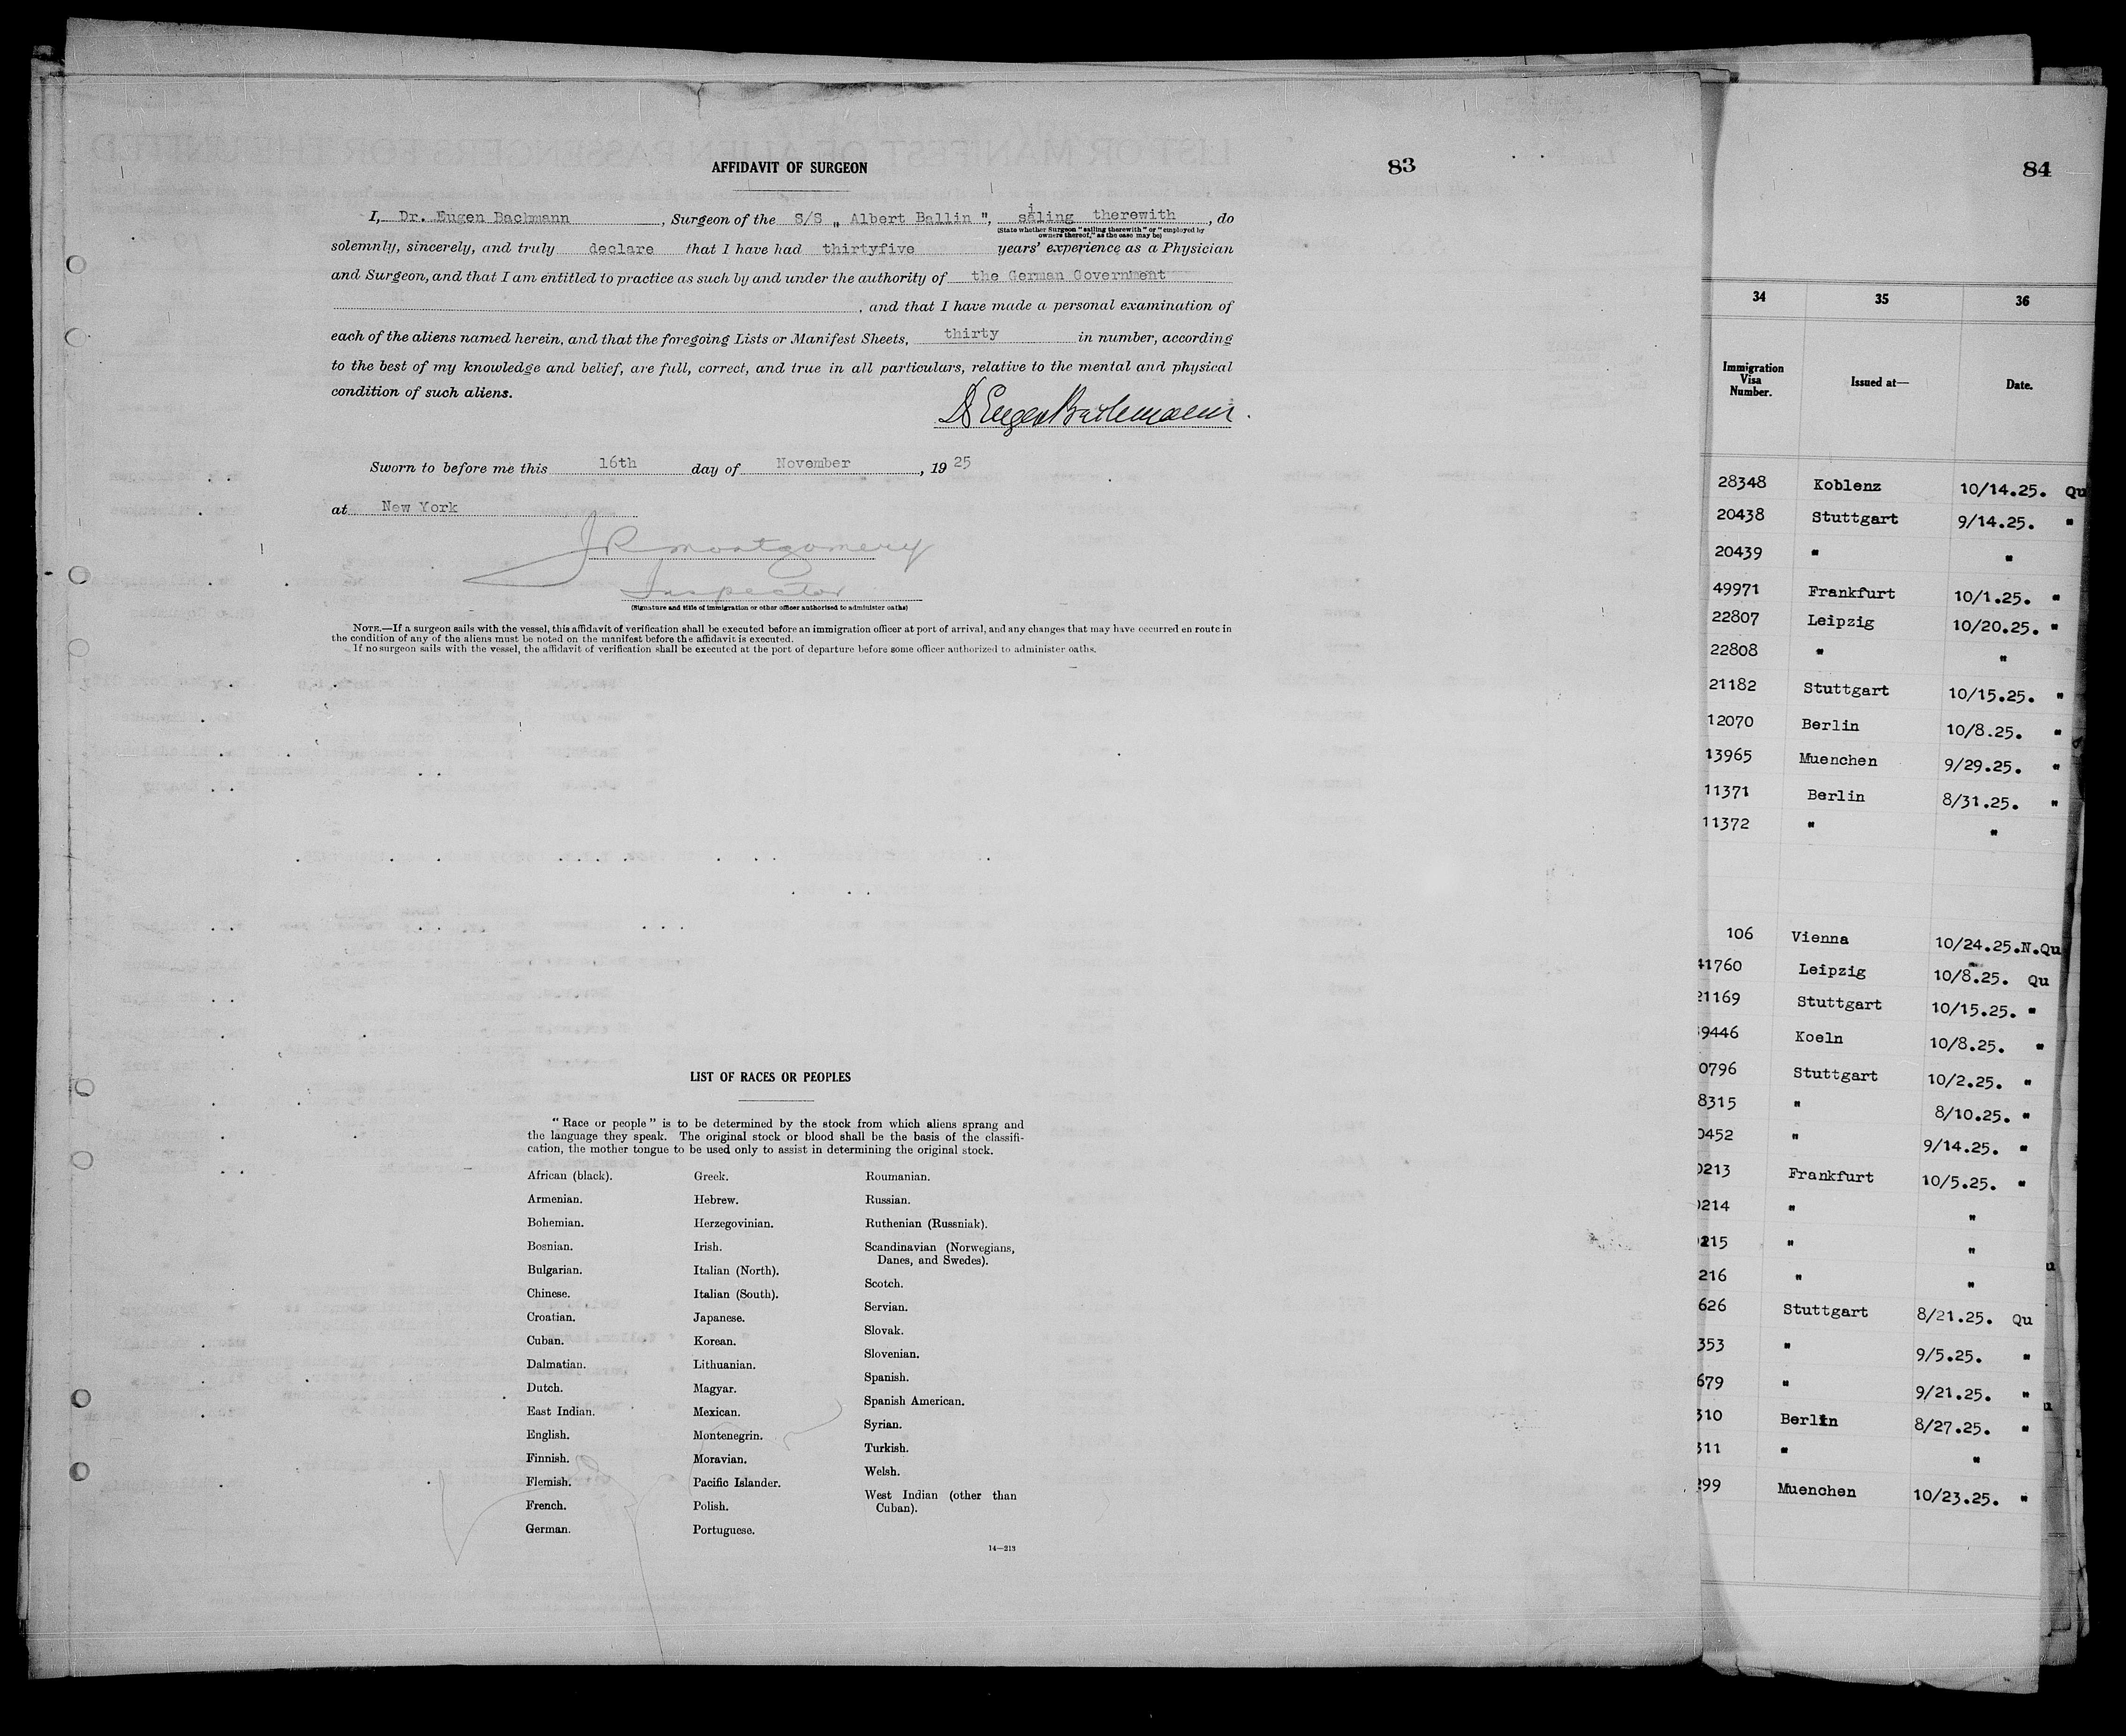 AFFIDAVIT OF SURGEON
83
I, Dr. Eugen Bachmann, Surgeon of the S/S „ Albert Ballin ", sailing therewith, do
(State whether Surgeon "sailing therewith" or "employed by owners thereof," as the case may be)
solemnly, sincerely, and truly declare that I have had thirtyfive years' experience as a Physician
and Surgeon, and that I am entitled to practice as such by and under the authority of the German Government
, and that I have made a personal examination of
each of the aliens named herein, and that the foregoing Lists or Manifest Sheets, thirty in number, according
to the best of my knowledge and belief, are full, correct, and true in all particulars, relative to the mental and physical
condition of such aliens.
Dr Eugen Bachmann.
Sworn to before me this 16th day of November, 1925
at New York
J R Montgomery
Inspector
(Signature and title of immigration or other officer authorised to administer oaths)
NOTE.—If a surgeon sails with the vessel, this affidavit of verification shall be executed before an immigration officer at port of arrival, and any changes that may have occurred en route in
the condition of any of the aliens must be noted on the manifest before the affidavit is executed.
If no surgeon sails with the vessel, the affidavit of verification shall be executed at the port of departure before some officer authorized to administer oaths.
LIST OF RACES OR PEOPLES
"Race or people" is to be determined by the stock from which aliens sprang and
the language they speak. The original stock or blood shall be the basis of the classifi-
cation, the mother tongue to be used only to assist in determining the original stock.
African (black).
Armenian.
Bohemian.
Bosnian.
Bulgarian.
Chinese.
Croatian.
Cuban.
Dalmatian.
Dutch.
East Indian.
English.
Finnish.
Flemish.
French.
German.
Greek.
Hebrew.
Herzegovinian.
Irish.
Italian (North).
Italian (South).
Japanese.
Korean.
Lithuanian.
Magyar.
Mexican.
Montenegrin.
Moravian.
Pacific Islander.
Polish.
Portuguese.
Roumanian.
Russian.
Ruthenian (Russniak).
Scandinavian (Norwegians,
Danes, and Swedes).
Scotch.
Servian.
Slovak.
Slovenian.
Spanish.
Spanish American.
Syrian.
Turkish.
Welsh.
West Indian (other than
Cuban).
14—213
84
34 35 36
Immigration Visa Number. Issued at— Date.
28348 Koblenz 10/14.25. Qu
20438 Stuttgart 9/14.25. "
20439 " "
49971 Frankfurt 10/1.25. "
22807 Leipzig 10/20.25. "
22808 " "
21182 Stuttgart 10/15.25. "
12070 Berlin 10/8.25. "
13965 Muenchen 9/29.25. "
11371 Berlin 8/31.25. "
11372 " "
106 Vienna 10/24.25.N.Qu
41760 Leipzig 10/8.25. Qu
21169 Stuttgart 10/15.25. "
9446 Koeln 10/8.25. "
0796 Stuttgart 10/2.25. "
8315 " 8/10.25. "
0452 " 9/14.25. "
0213 Frankfurt 10/5.25. "
0214 " "
215 " "
216 " "
626 Stuttgart 8/21.25. Qu
353 " 9/5.25. "
679 " 9/21.25. "
310 Berlin 8/27.25. "
311 " "
299 Muenchen 10/23.25. "